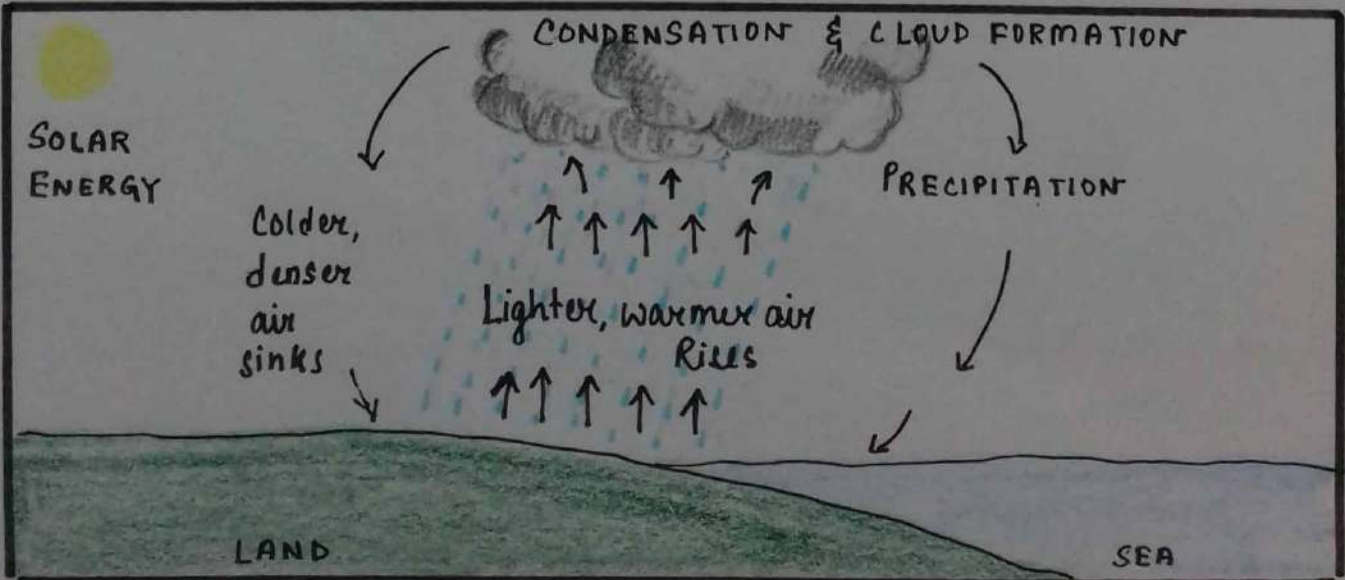 CONDENSATION & CLOUD FORMATION
SOLAR
ENERGY
PRECIPITATION
Colder,
denser
air
sinks
Lighter, warmer air
Rises
LAND
SEA